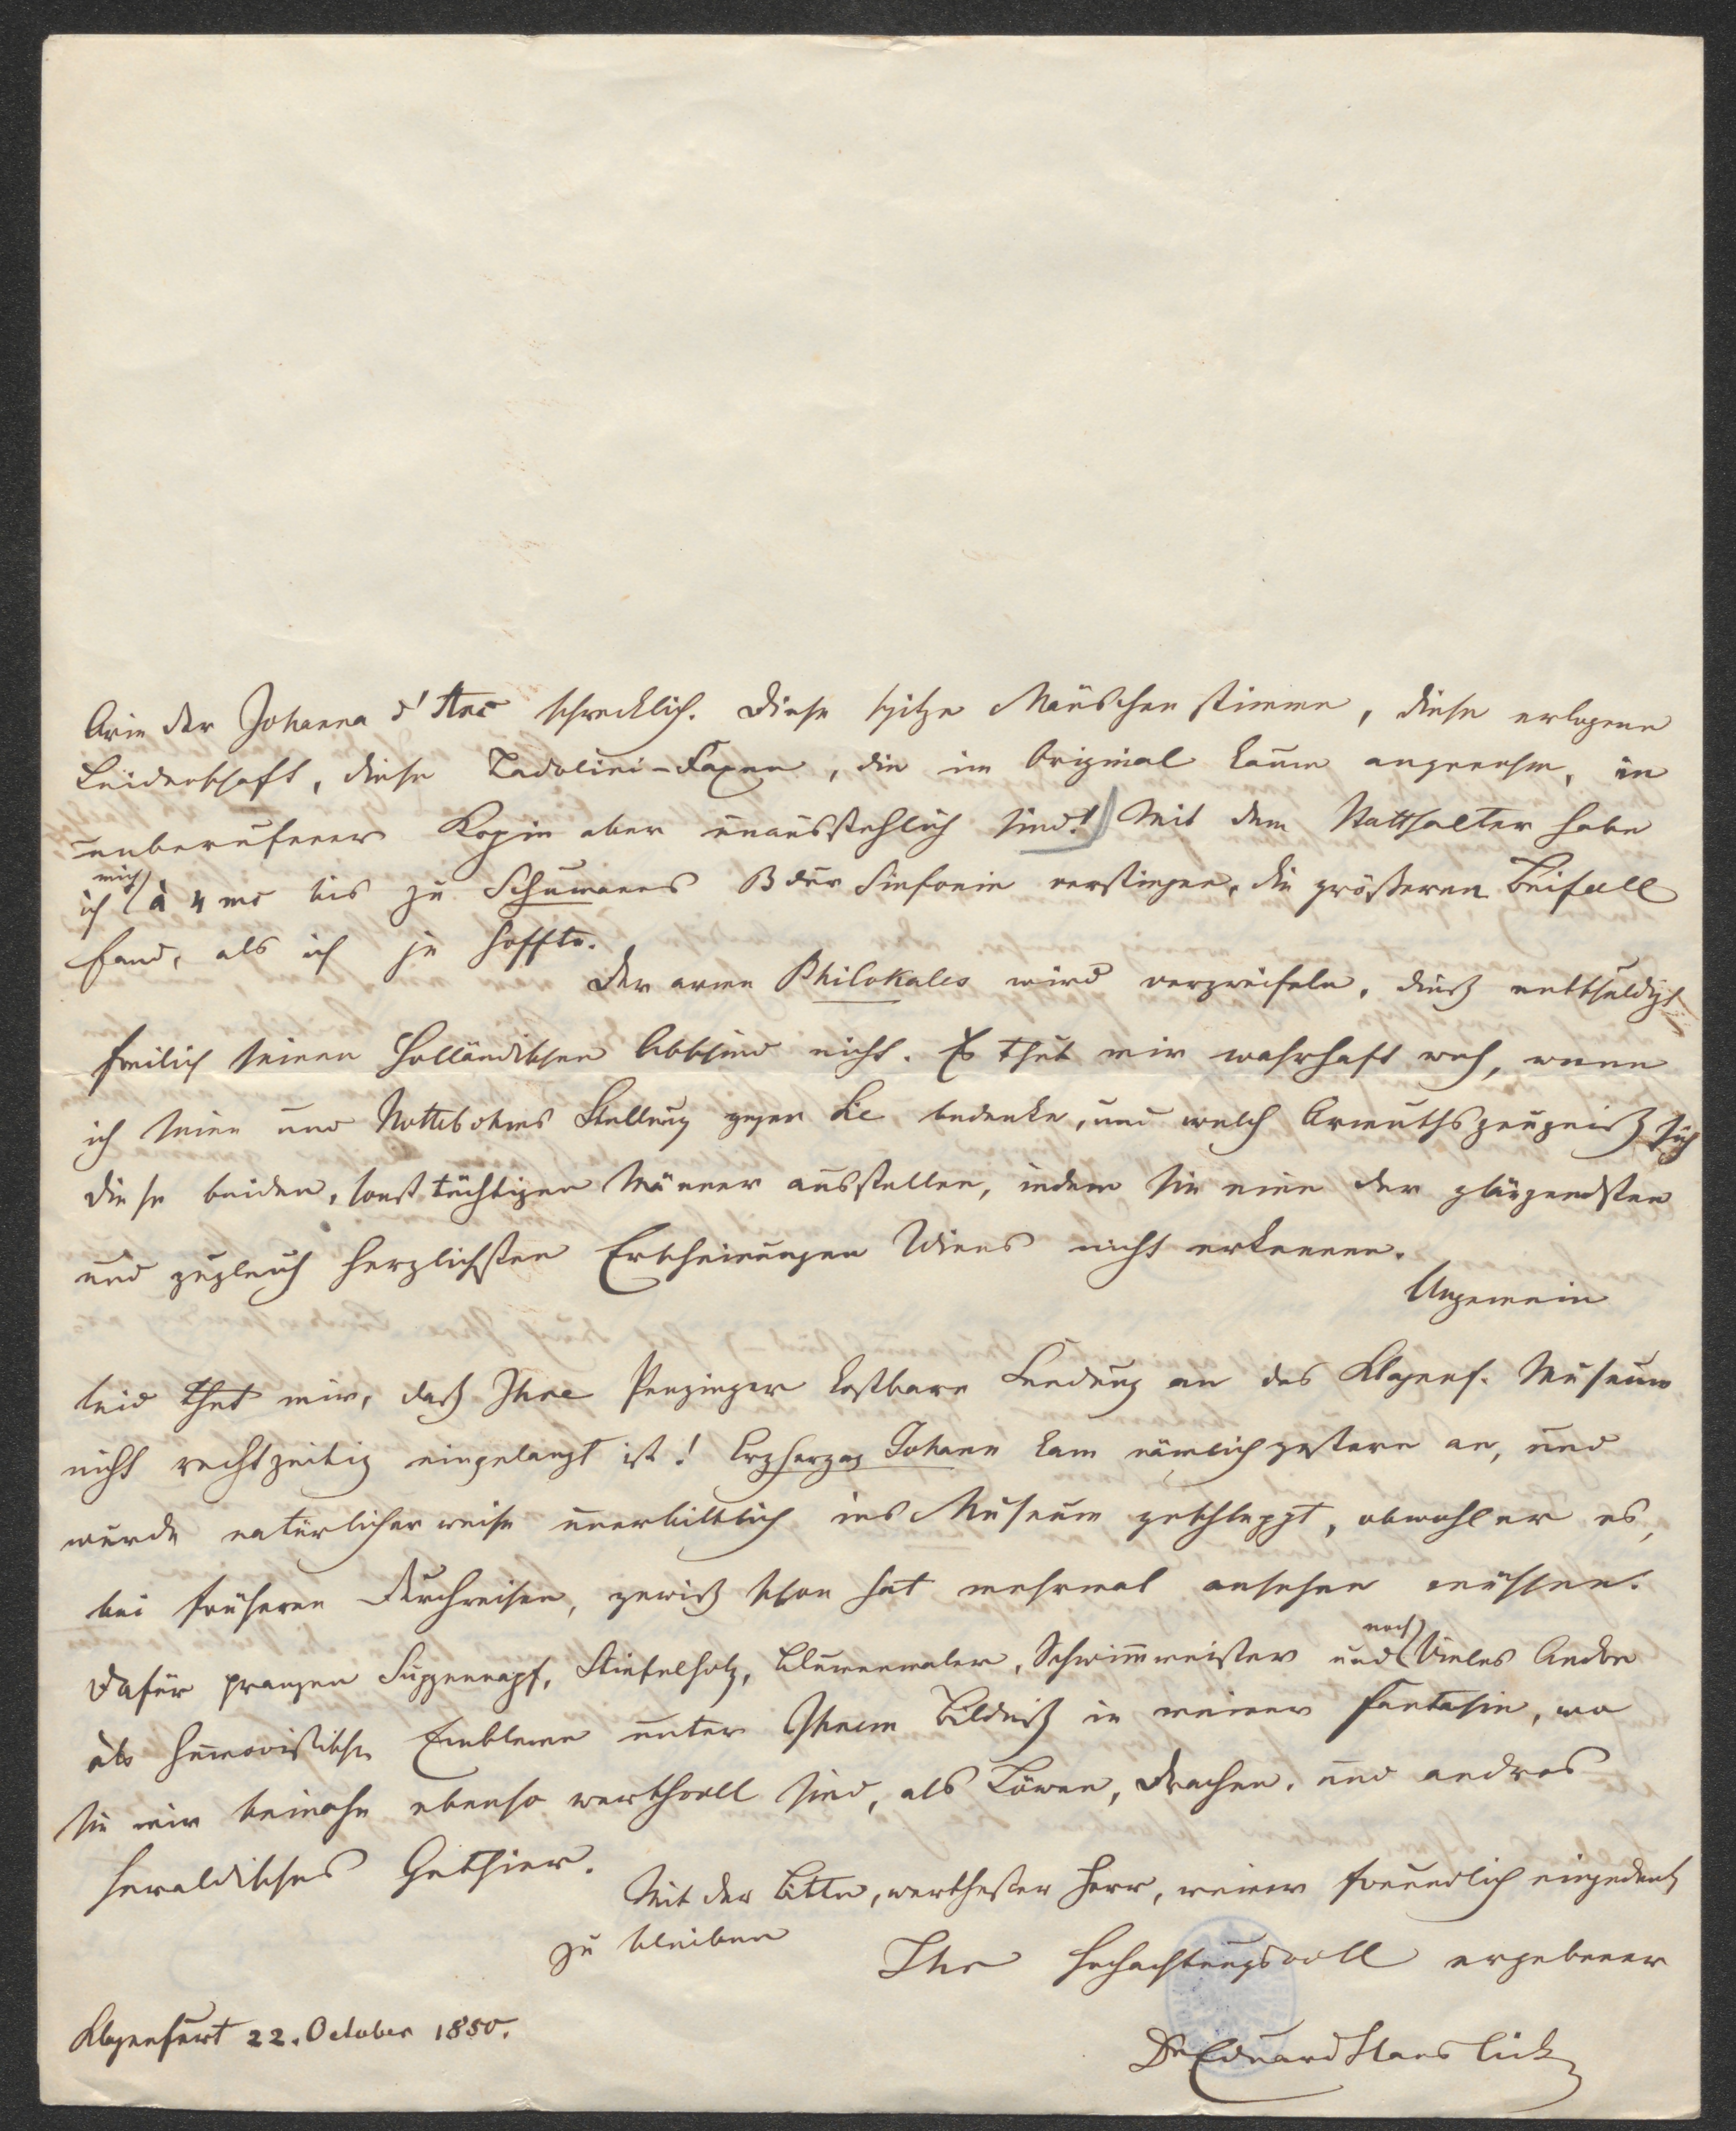 Arie der Johanna d'Arc schrecklich. Diese spitze Mäuschenstimme, diese erlogene
Leidenschaft, diese Tadolini-Faxen, die im Original kaum angenehm, in
unberufener Kopie aber unausstehlich sind! Mit dem Statthalter habe
ich mich à 4 ms bis zu Schumanns B dur Sinfonie verstiegen, die größeren Beifall
fand, als ich je hoffte.
Der arme Philokales wird verzweifeln, dieß entschuldigt
freilich seinen holländischen Abstheid nicht. Es thut mir wahrhaft weh, wenn
ich seine und Nottebohms Stellung gegen Sie bedenke, und welch Armuthszeugniß sich
diese beiden, sonst tüchtigen Männer ausstellen, indem sie eine der glänzendsten
und zugleich herzlichsten Erscheinungen Wiens nicht erkennen.
Ungemein
leid thut mir, daß Ihre Penzinger kostbare Sendung an das Klagenf. Museum
nicht rechtzeitig eingelangt ist! Erzherzog Johann kam nämlich gestern an, und
wurde natürlicherweise unerbittlich ins Museum geschleppt, obwohl er es,
bei früheren Durchreisen, gewiß schon hat mehrmal ansehen müssen.
Dafür prangen Suppennapf, Stiefelholz, Blumenmaler, Schwimmeister und noch Vieles Andre
als humoristische Embleme unter Ihrem Bildniß in meiner Fantasie, wo
sie mir beinahe ebenso werthvoll sind, als Löwen, Drachen, und andres
heraldisches Gethier.
Mit der Bitte, werthester Herr, meiner freundlich eingedenk
zu bleiben
Ihr hochachtungsvoll ergebener
Klagenfurt 22. October 1850.
Dr Eduard Hanslick